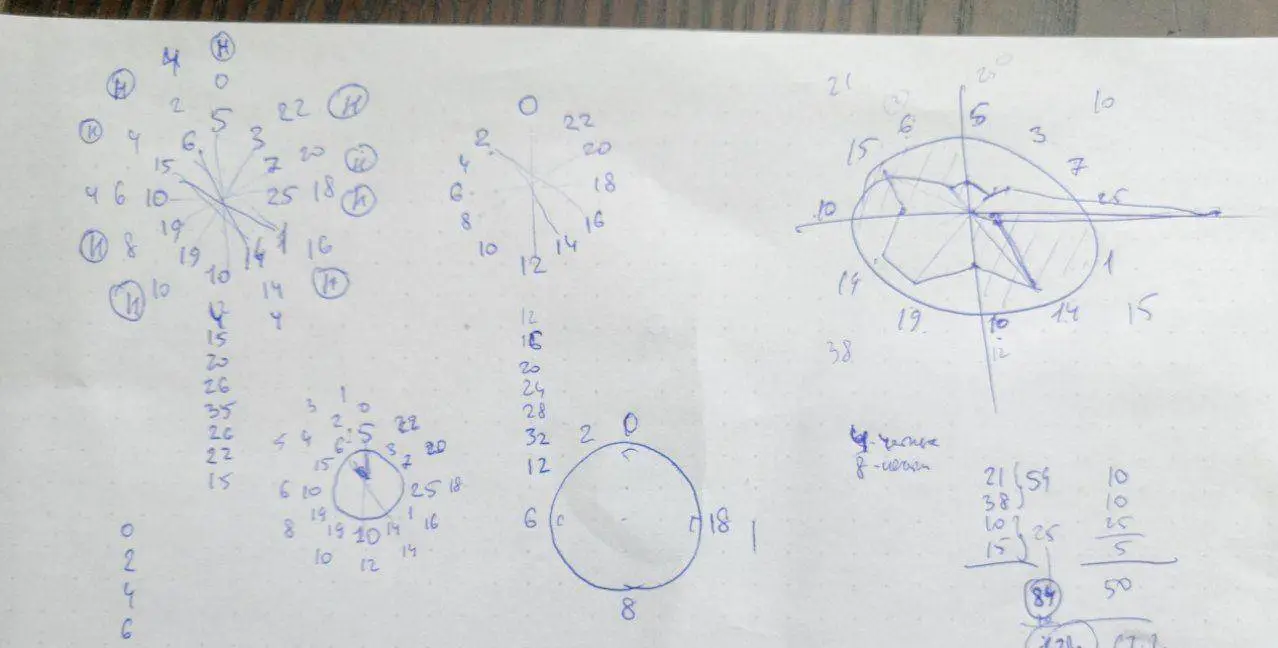 4 Н
Н 0
2 5 3 22 Н
Н 4 6 7 20 Н
15
4 6 10 25 18 Н
19 1
Н 8 19 14 16
10
Н 10 14 Н
4
15
20
26
35
26
22
15
0
2
4
6
1
3 0
2 5 22
5 4 6 3 20
15 7
6 10 25 18
19 1
8 19 10 14 16
10 12 14
0
2 22
4 20
6 18
8 16
10 14
12
12
16
20
24
28
32
12
2 0
6 18
8
21 10
6 5 3
15 7
10 25
1
19 19 10 14 15
38 12
4-четные
8-
21 10
38 59 10
10 25
15 25 5
84 50